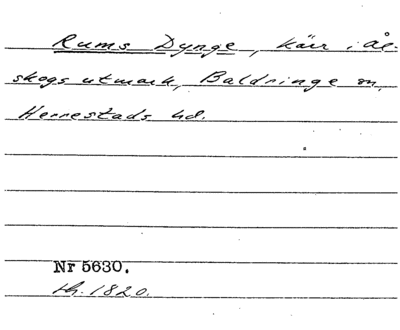 Rums Dynge, kärr i Ål-
skogs utmark, Baldringe sn,
Herrestads hd.
Nr 5630.
th. 1820.